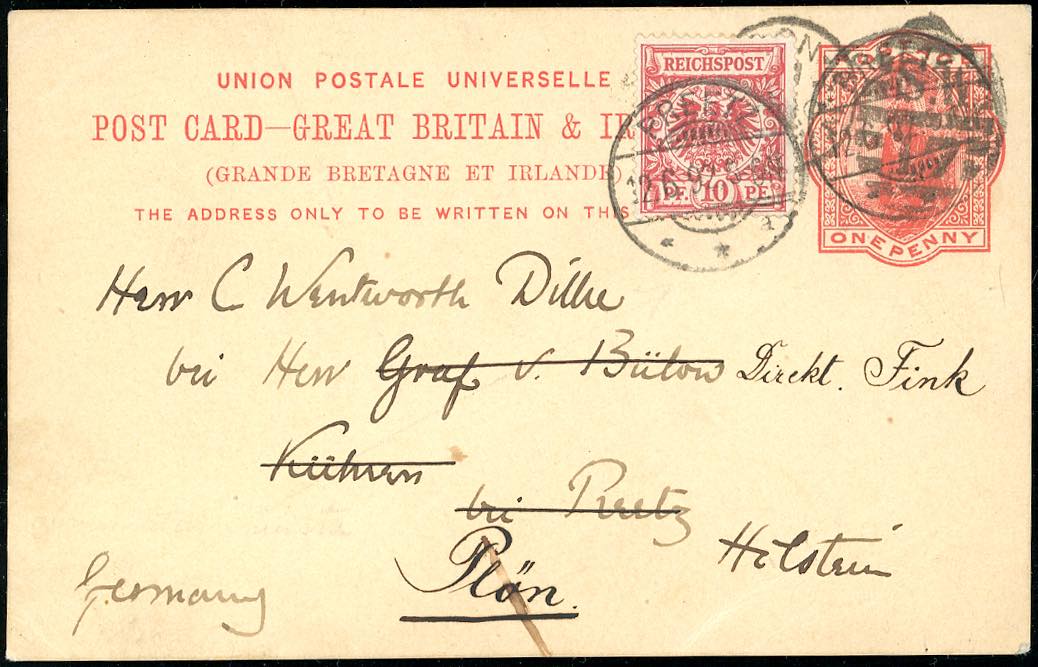 UNION POSTALE UNIVERSELLE
POST CARD—GREAT BRITAIN & I
(GRANDE BRETAGNE ET IRLANDE)
THE ADDRESS ONLY TO BE WRITTEN ON THIS
REICHSPOST
PF. 10 PF.
PREETZ
12.6.9
ONE PENNY
Herr C Wentworth Dilke
bei Herr Graf v. Bülow Direkt. Fink
Kühren
bei Preetz
Holstein
Plön.
Germany